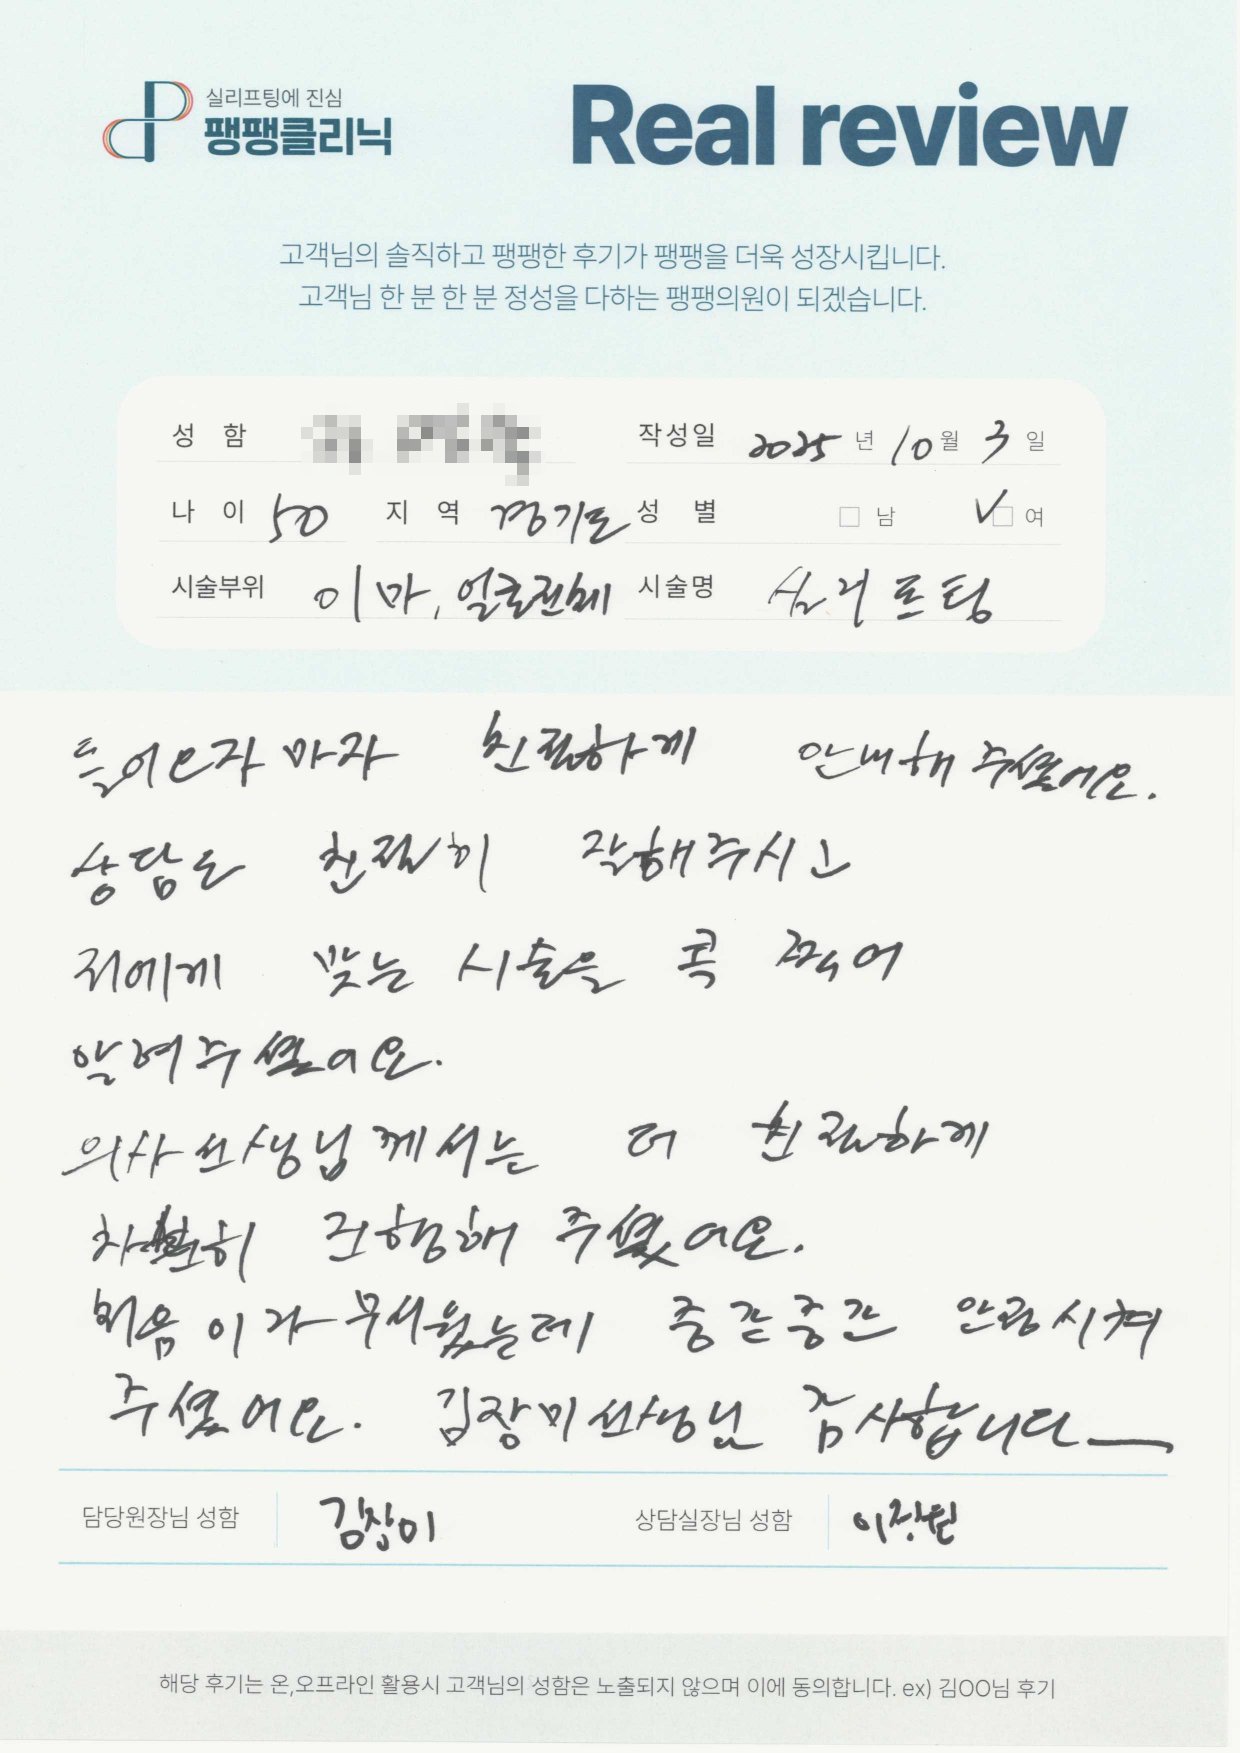 실리프팅에 진심
팽팽클리닉
Real review
고객님의 솔직하고 팽팽한 후기가 팽팽을 더욱 성장시킵니다.
고객님 한 분 한 분 정성을 다하는 팽팽의원이 되겠습니다.
성 함 작성일 2025 년 10 월 3 일
나 이 50 지 역 경기도 성 별 □ 남 ✓□ 여
시술부위 이마, 얼굴전체 시술명 실리프팅
들어오자마자 친절하게 안내해 주셨어요.
상담도 친절히 잘해주시고
저에게 맞는 시술을 콕 찍어
알려주셨어요.
의사선생님께서는 더 친절하게
차분히 진행해 주셨어요.
처음이라 무서웠는데 중간중간 안심시켜
주셨어요. 김장미선생님 감사합니다
담당원장님 성함 김장미 상담실장님 성함
해당 후기는 온,오프라인 활용시 고객님의 성함은 노출되지 않으며 이에 동의합니다. ex) 김OO님 후기